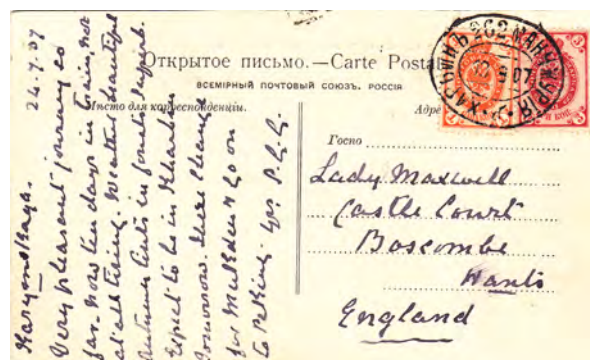 Открытое письмо.—Carte Postal
ВСЕМІРНЫЙ ПОЧТОВЫЙ СОЮЗЪ. РОССІЯ
Мѣсто для корреспонденціи.
Адре
Госпо
Lady Maxwell
Castle Court
Boscombe
Hants
England
ХАРБИНЪ 202 МАНЧЖУРІЯ
Very pleasant journey so
far. Now ten days in train, not
at all tiring. Weather beautiful
Autumn tints in forests superb.
Expect to be in Kharbin
tomorrow. There change
for Mukden & go on
to Peking.